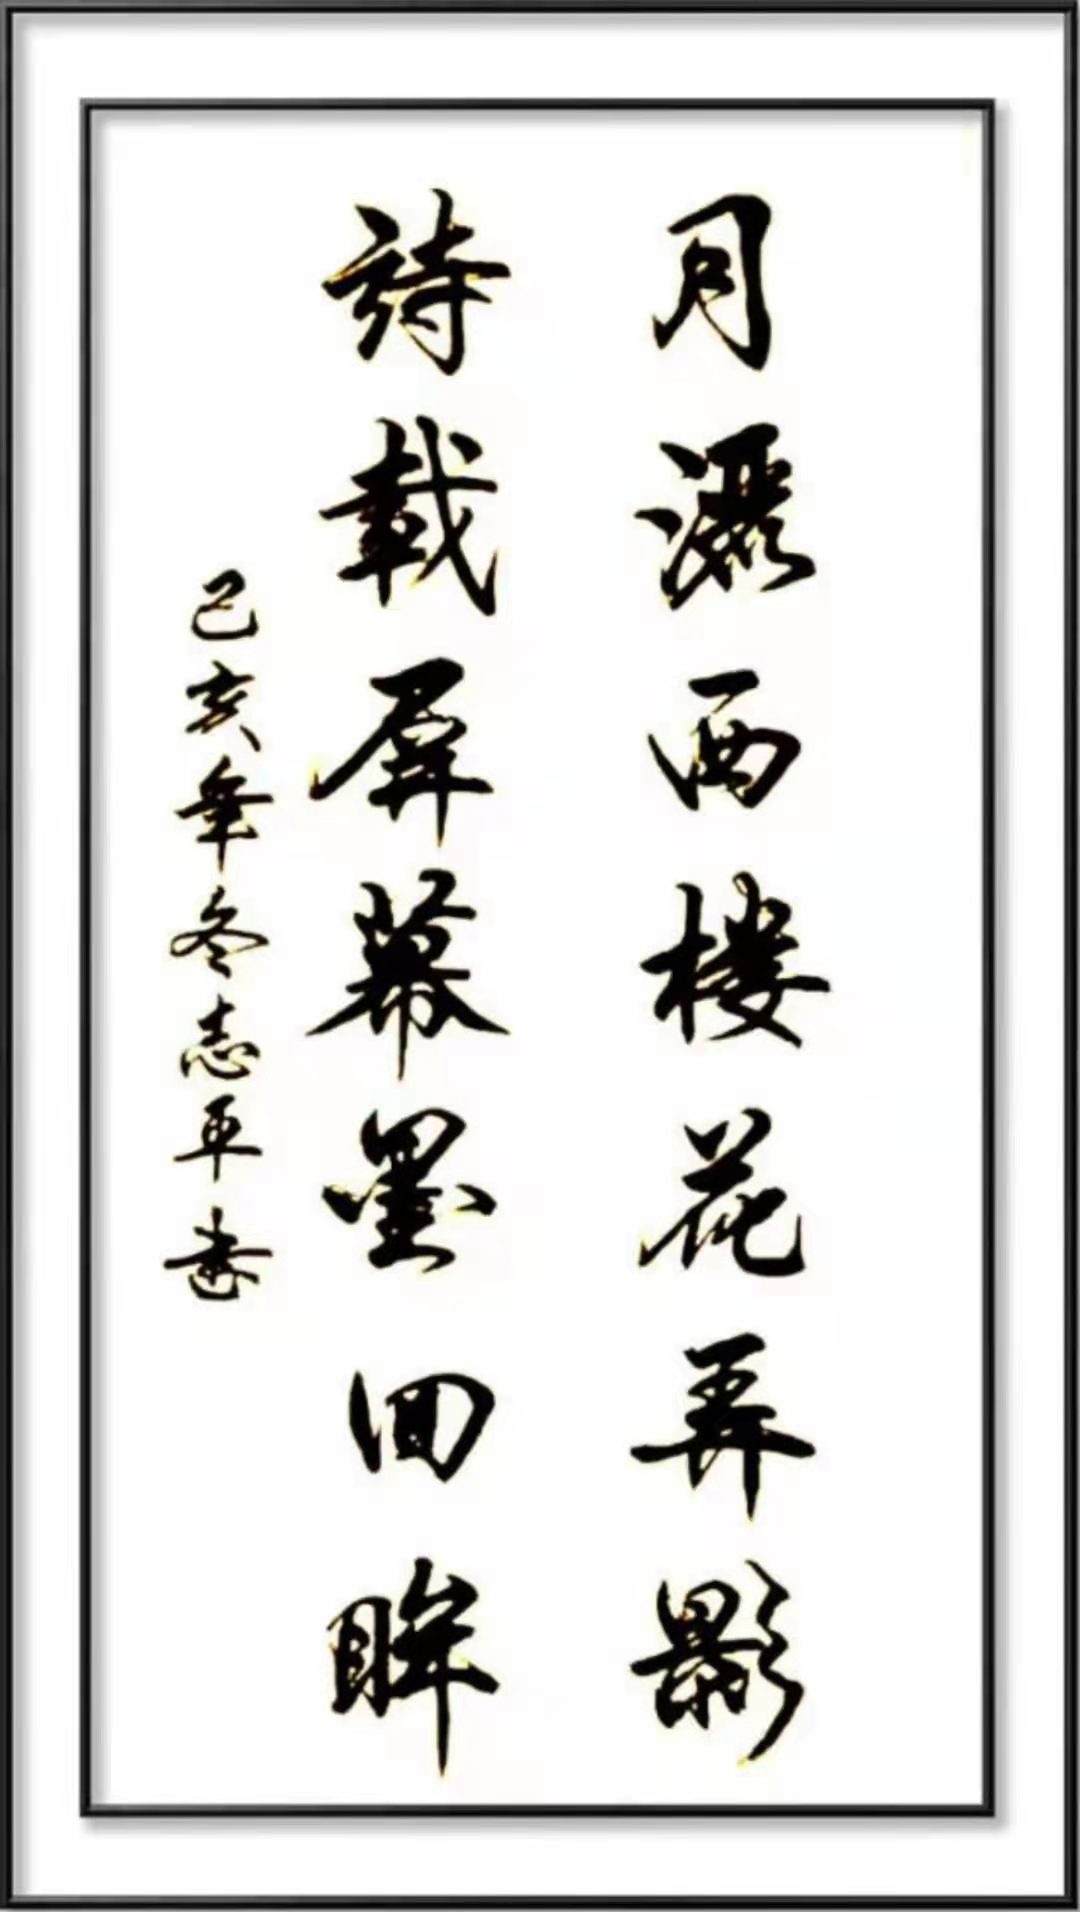 月灑西楼花弄影
詩載屏幕墨回眸
己亥年冬志平書